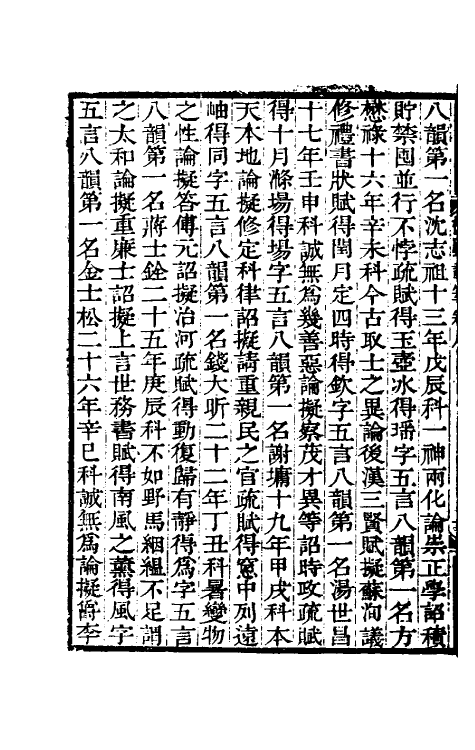 八韻第一名沈志祖十三年戊辰科一神兩化論崇正學詔積
貯禁囤並行不悖疏賦得玉壺水得璠字五言八韻第一名方
懋祿十六年辛未科今古取士之異論後漢三賢賦擬蘇洵議
修禮書狀賦得閏月定四時得欽字五言八韻第一名湯世昌
十七年壬申科誠無爲幾善惡論擬察茂才異等詔時政疏賦
得十月滌場得場字五言八韻第一名謝墉十九年甲戌科本
天本地論擬修定科律詔擬請重親民之官疏賦得窻中列遠
岫得同字五言八韻第一名錢大昕二十二年丁丑科暑變物
之性論擬答傅元詔擬治河疏賦得動復歸有靜得爲字五言
八韻第一名蔣士銓二十五年庚辰科不如野馬絪縕不足謂
之太和論擬重廉士詔擬上言世務書賦得南風之薰得風字
五言八韻第一名金士松二十六年辛巳科誠無爲論擬爵李